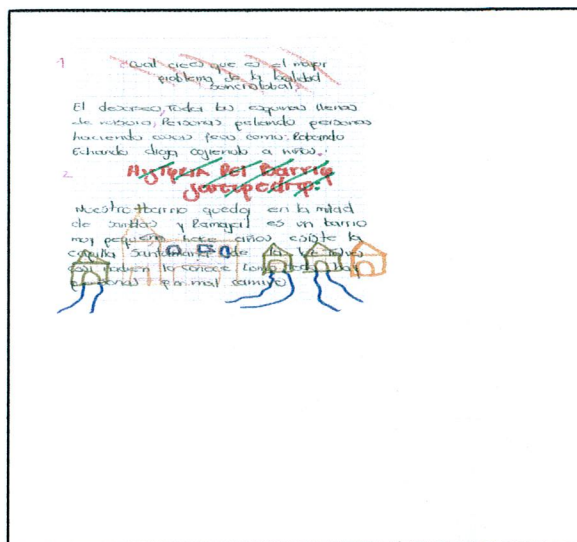 1 ¿Cual crees que es el mayor
problema de la localidad
sancristobal.
El deseaseo, Todas las esquinas llenas
de basura, Personas peliando personas
haciendo cosas feas como: Robando
Echando droga cogiendo a niños.
2 Historia Del Barrio
sanpedro:
Nuestro barrio queda en la mitad
de y Ramajal es un barrio
muy pequeño hace años existe la
capilla Santamaria de la
tambien la conoce como
personas por mal camino